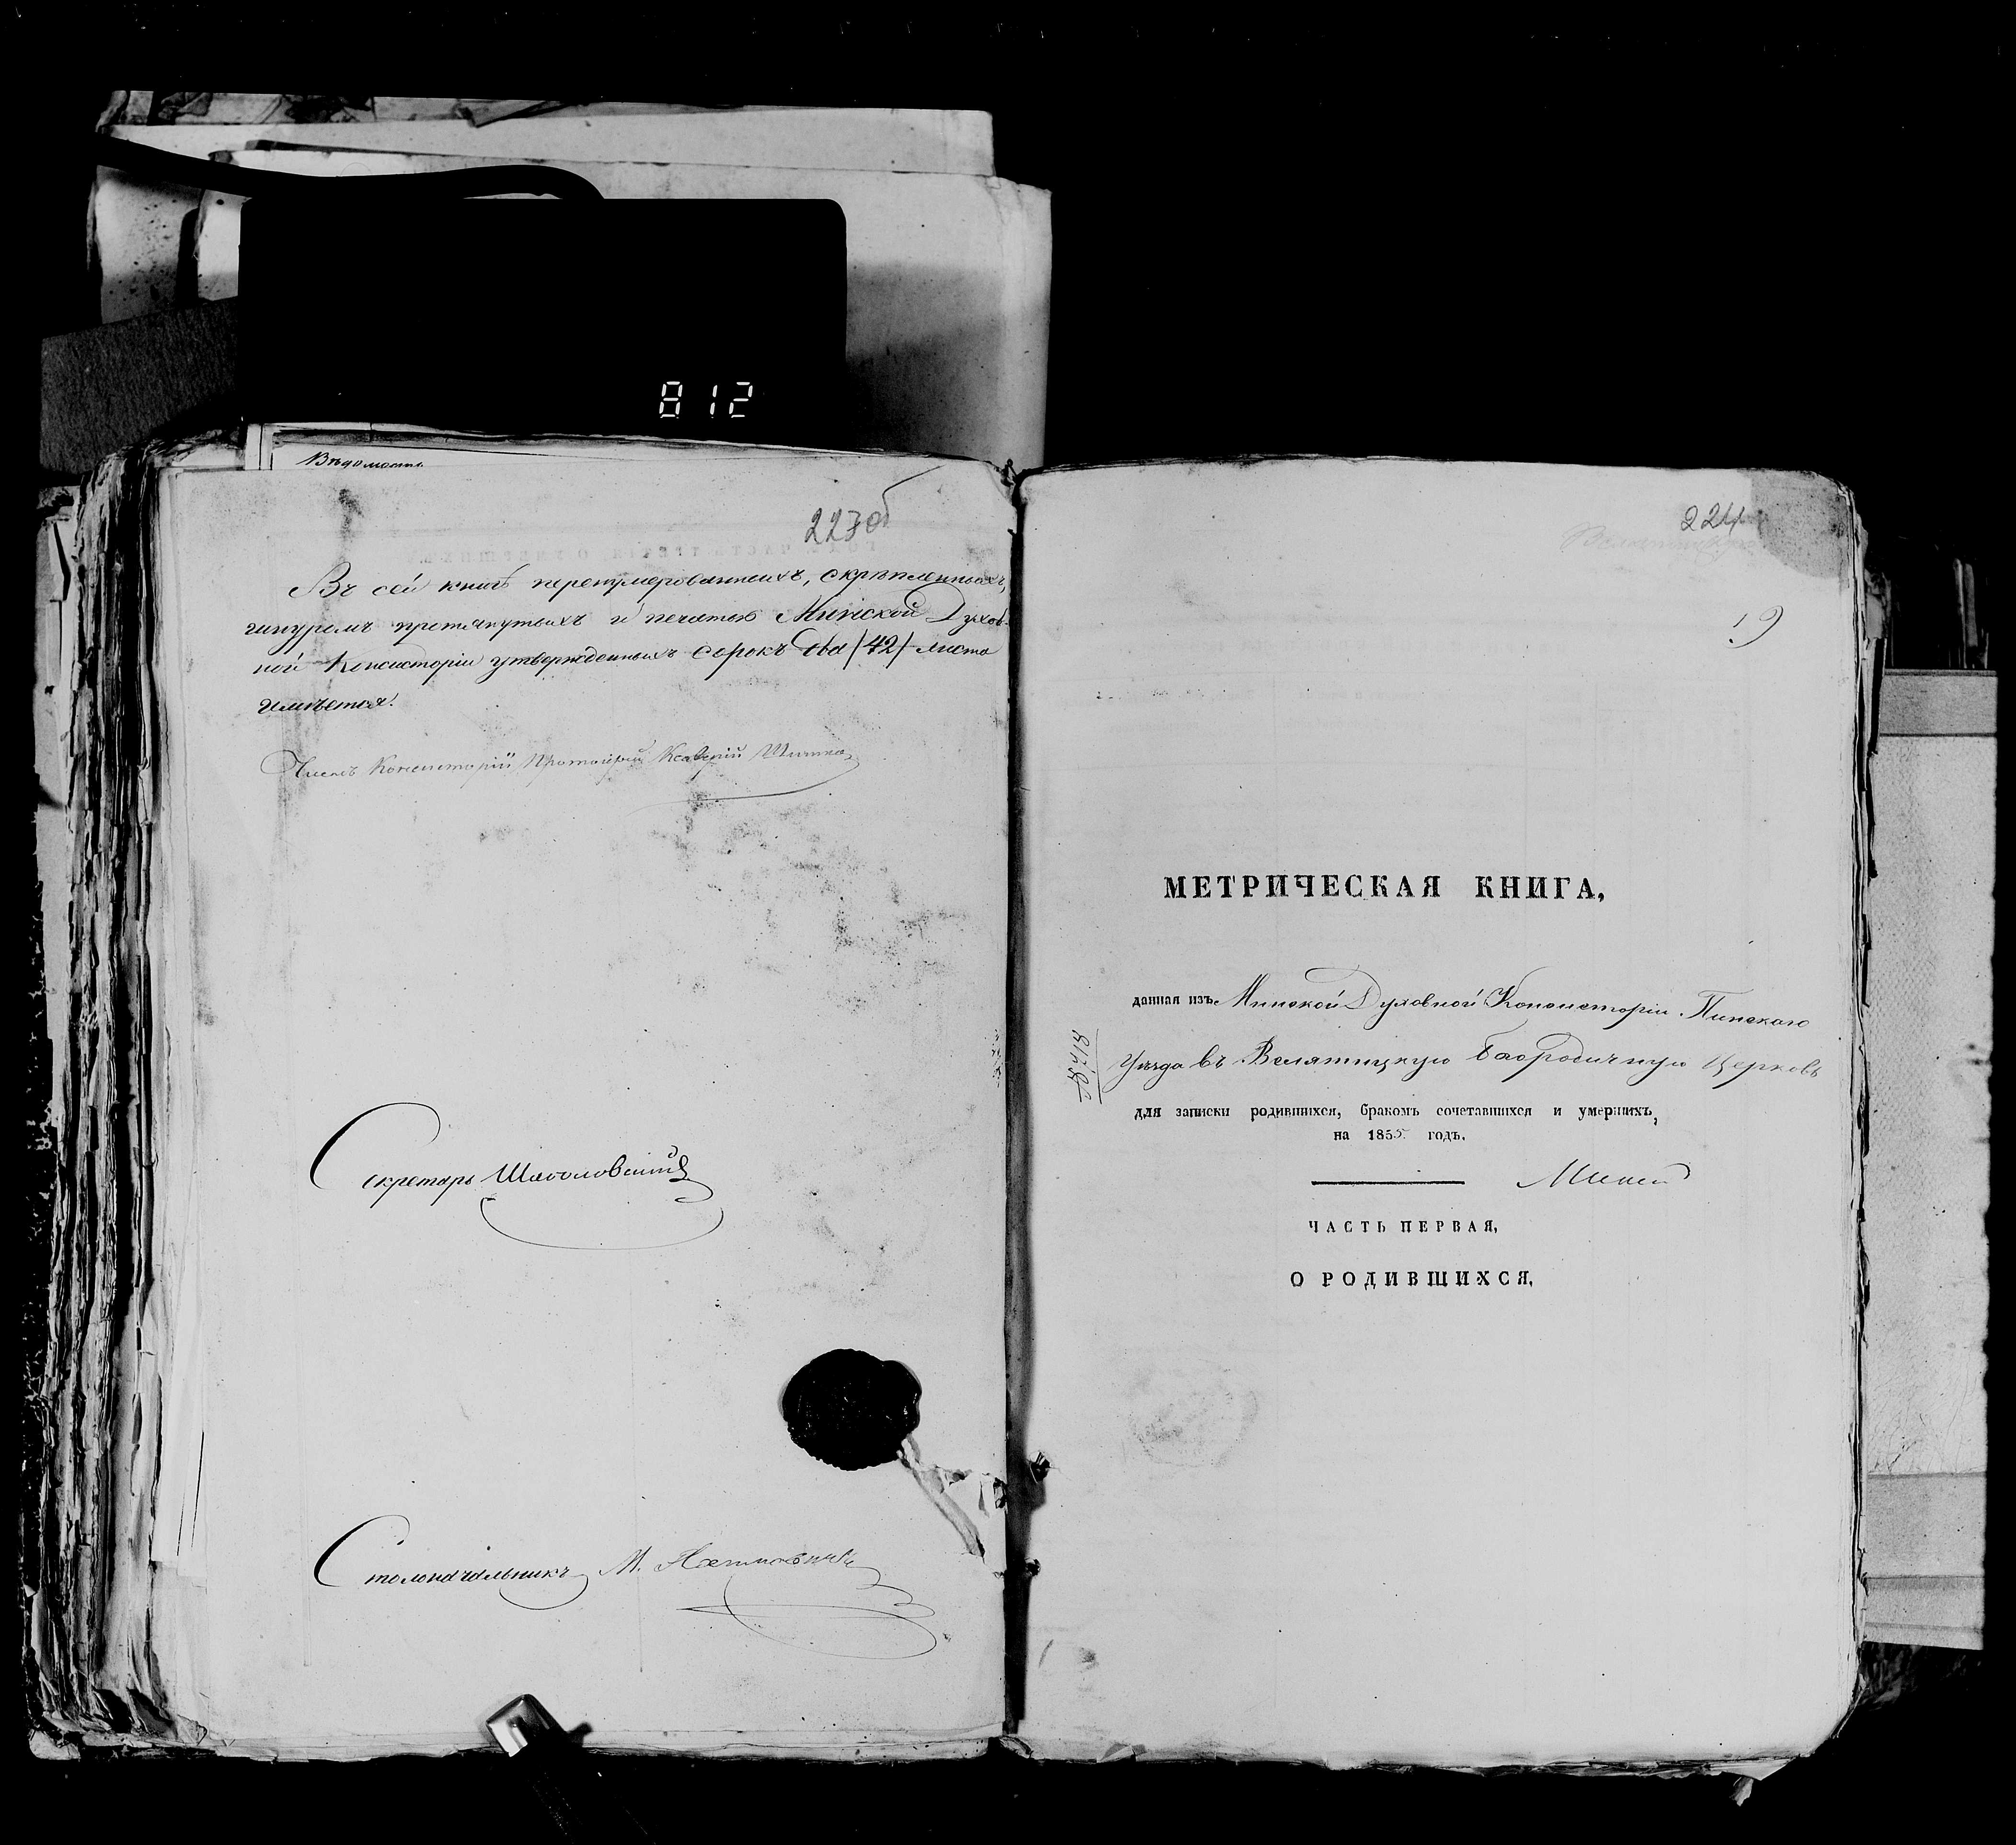 812
Вѣдомость
223об
Въ сей книгѣ перенумерованныхъ, скрѣпленныхъ,
шнуромъ протянутыхъ и печатью Минской Духов-
ной Консисторіи утвержденныхъ сорокъ два /42/ листа
имѣется.
Членъ Консисторіи Протоіерей Ксаверій
Секретарь
Столоначальникъ М.
224
19
МЕТРИЧЕСКАЯ КНИГА,
данная изъ Минской Духовной Консисторіи Пинскаго
Уѣзда въ Велятицкую Богородичную Церковь
для записки родившихся, бракомъ сочетавшихся и умершихъ,
на 1855 годъ.
ЧАСТЬ ПЕРВАЯ,
О РОДИВШИХСЯ,